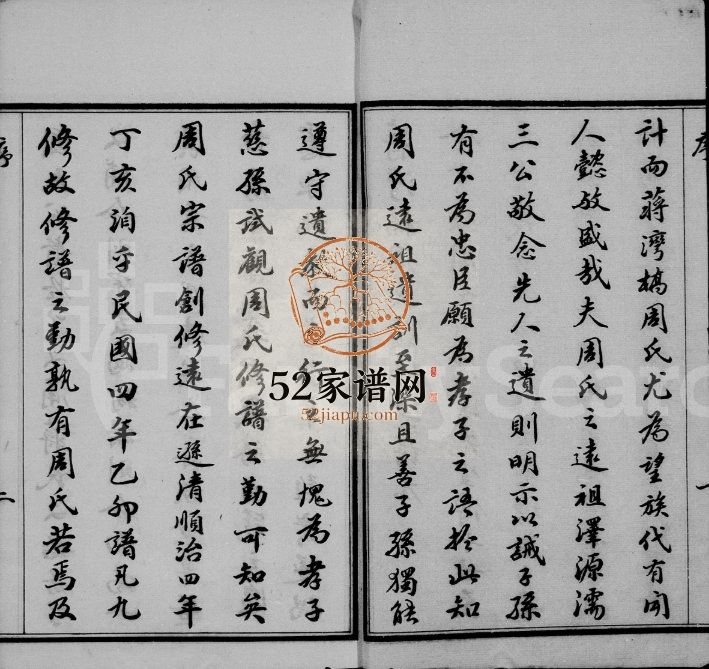 序
一
計而蔣灣橋周氏尤為望族代有聞
人懿攷盛哉夫周氏之遠祖澤源濡
三公敬念先人之遺則明示以誡子孫
有不為忠臣願為孝子之語於此知
周氏遠祖遺訓至深且善子孫獨能
遵守遺 而 行 無愧為孝子
慈孫試觀周氏修譜之勤可知矣
周氏宗譜創修遠在遜清順治四年
丁亥洎乎民國四年乙卯譜凡九
修故修譜之勤孰有周氏若焉及
序
二
52家谱网
52jiapu.com
FamilySearch